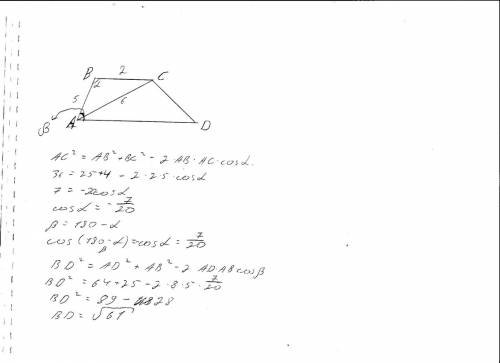 B 2 C
2
5 6
β A D
AC² = AB² + BC² - 2 AB · AC · cosα.
36 = 25+4 - 2 · 2·5 · cosα
7 = -20cosα
cosα = - 7/20
β = 180 - α
cos(180-α) = cosα = 7/20
β
BD² = AD² + AB² - 2 AD AB cosβ
BD² = 64 + 25 - 2 · 8 · 5 · 7/20
BD² = 89 - 28
BD = √61